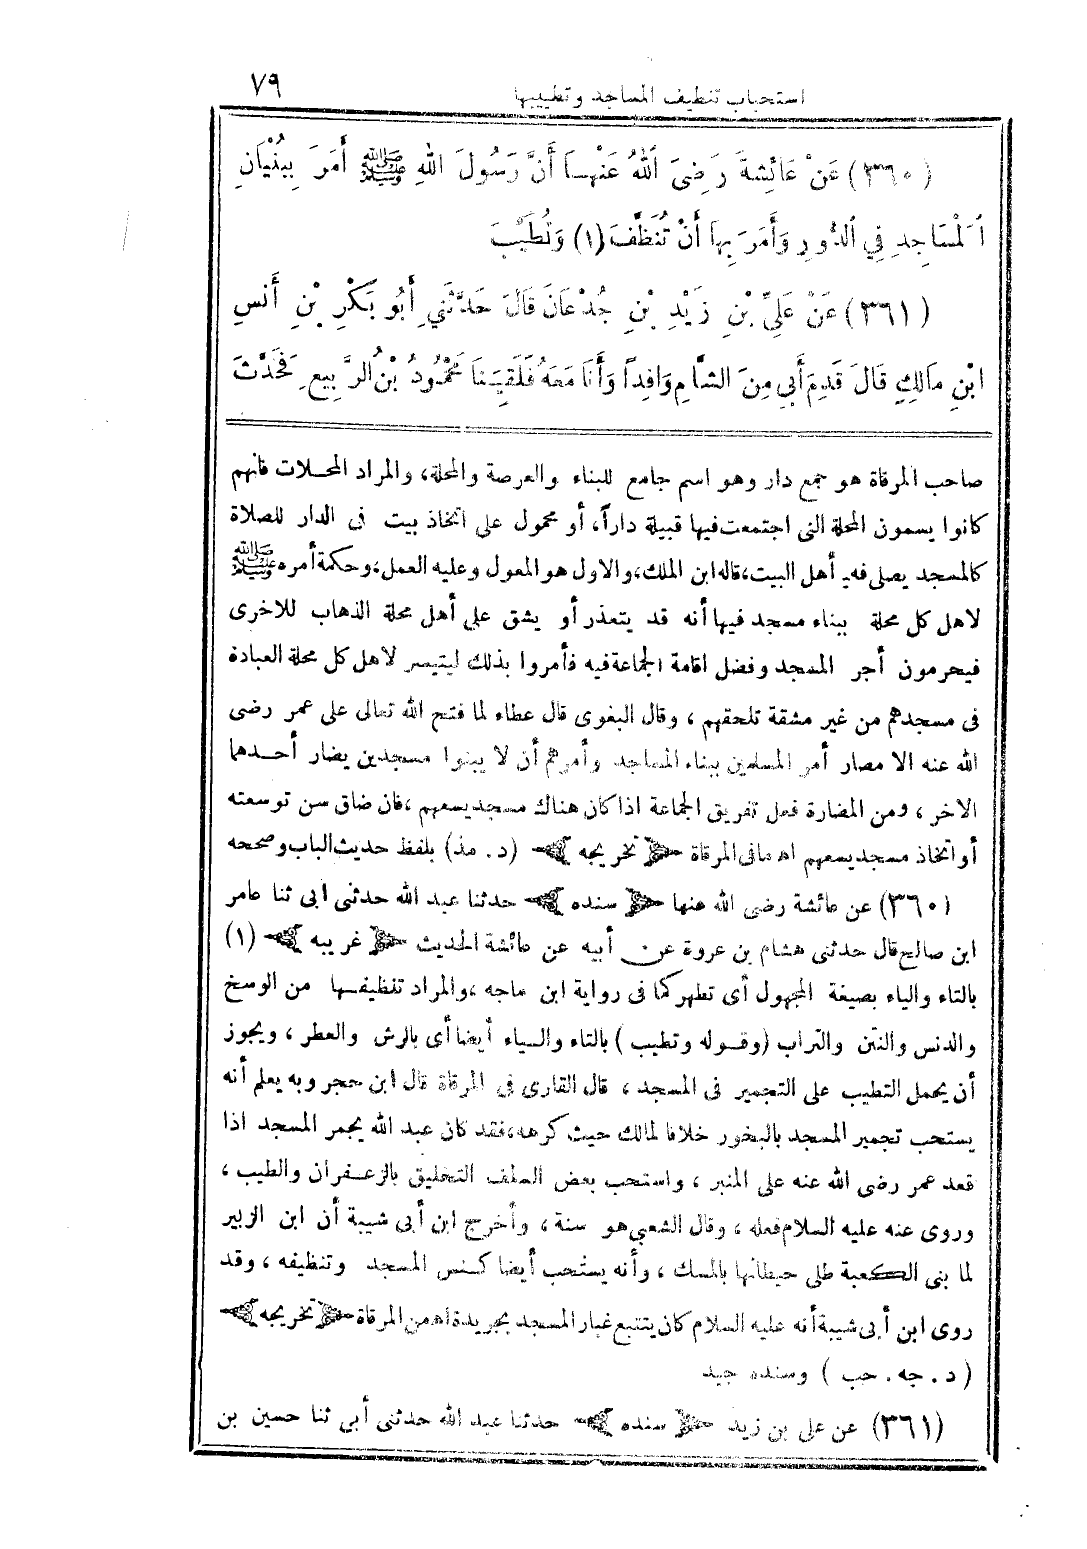 استحباب تنظيف المساجد وتطييبها ٧٩
(٣٦٠) عَنْ عَائِشَةَ رَضِىَ اَللهُ عَنْهَا أَنَّ رَسُولَ اللهِ ﷺ أَمَرَ بِبُنْيَانِ
اَلْمَسَاجِدِ فِي الدُّورِ وَأَمَرَ بِهَا أَنْ تُنَظَّفَ (١) وَتُطَيَّبَ
(٣٦١) عَنْ عَلِيِّ بْنِ زَيْدِ بْنِ جُدْعَانَ قَالَ حَدَّثَنِي أَبُو بَكْرِ بْنِ أَنَسِ
ابْنِ مَالِكٍ قَالَ قَدِمَ أَبِي مِنَ الشَّامِ وَافِدًا وَأَنَا مَعَهُ فَلَقِيَنَا مَحْمُودُ بْنُ الرَّبِيعِ فَحَدَّثَ
صاحب المرقاة هو جمع دار وهو اسم جامع للبناء والعرصة والمحلة، والمراد المحلات فانهم
كانوا يسمون المحلة التى اجتمعت فيها قبيلة داراً، أو محمول على اتخاذ بيت فى الدار للصلاة
كالمسجد يصلى فيه أهل البيت، قاله ابن الملك، والاول هو المعول وعليه العمل، وحكمة أمره ﷺ
لاهل كل محلة ببناء مسجد فيها أنه قد يتعذر أو يشق على أهل محلة الذهاب للاخرى
فيحرمون أجر المسجد وفضل اقامة الجماعة فيه فأمروا بذلك ليتيسر لاهل كل محلة العبادة
فى مسجدهم من غير مشقة تلحقهم ، وقال البغوى قال عطاء لما فتح الله تعالى على عمر رضى
الله عنه الامصار أمر المسلمين ببناء المساجد وأمرهم أن لا يبنوا مسجدين يضار أحدهما
الاخر ، ومن المضارة فعل تفريق الجماعة اذا كان هناك مسجد يسعهم ، فان ضاق سن توسعته
أو اتخاذ مسجد يسعهم اه مافى المرقاة ﴿ تخريجه ﴾ (د . مذ) بلفظ حديث الباب وصححه
(٣٦٠) عن عائشة رضى الله عنها ﴿ سنده ﴾ حدثنا عبد الله حدثنى ابى ثنا عامر
ابن صالح قال حدثنى هشام بن عروة عن أبيه عن عائشة الحديث ﴿ غريبه ﴾ (١)
بالتاء والياء بصيغة المجهول أى تطهر كما فى رواية ابن ماجه ، والمراد تنظيفها من الوسخ
والدنس والنتن والتراب (وقوله وتطيب) بالتاء والياء أيضا أى بالرش والعطر ، ويجوز
أن يحمل التطيب على التجمير فى المسجد ، قال القارى فى المرقاة قال ابن حجر وبه يعلم أنه
يستحب تجمير المسجد بالبخور خلافا لمالك حيث كرهه، فقد كان عبد الله يجمر المسجد اذا
قعد عمر رضى الله عنه على المنبر ، واستحب بعض السلف التخليق بالزعفران والطيب ،
وروى عنه عليه السلام فعله ، وقال الشعبي هو سنة ، وأخرج ابن أبى شيبة أن ابن الزبير
لما بنى الكعبة طلى حيطانها بالمسك ، وأنه يستحب أيضا كنس المسجد وتنظيفه ، وقد
روى ابن أبى شيبة أنه عليه السلام كان يتتبع غبار المسجد بجريدة اه من المرقاة ﴿ تخريجه ﴾
(د . جه . حب ) وسنده جيد
(٣٦١) عن على بن زيد ﴿ سنده ﴾ حدثنا عبد الله حدثنى أبي ثنا حسين بن